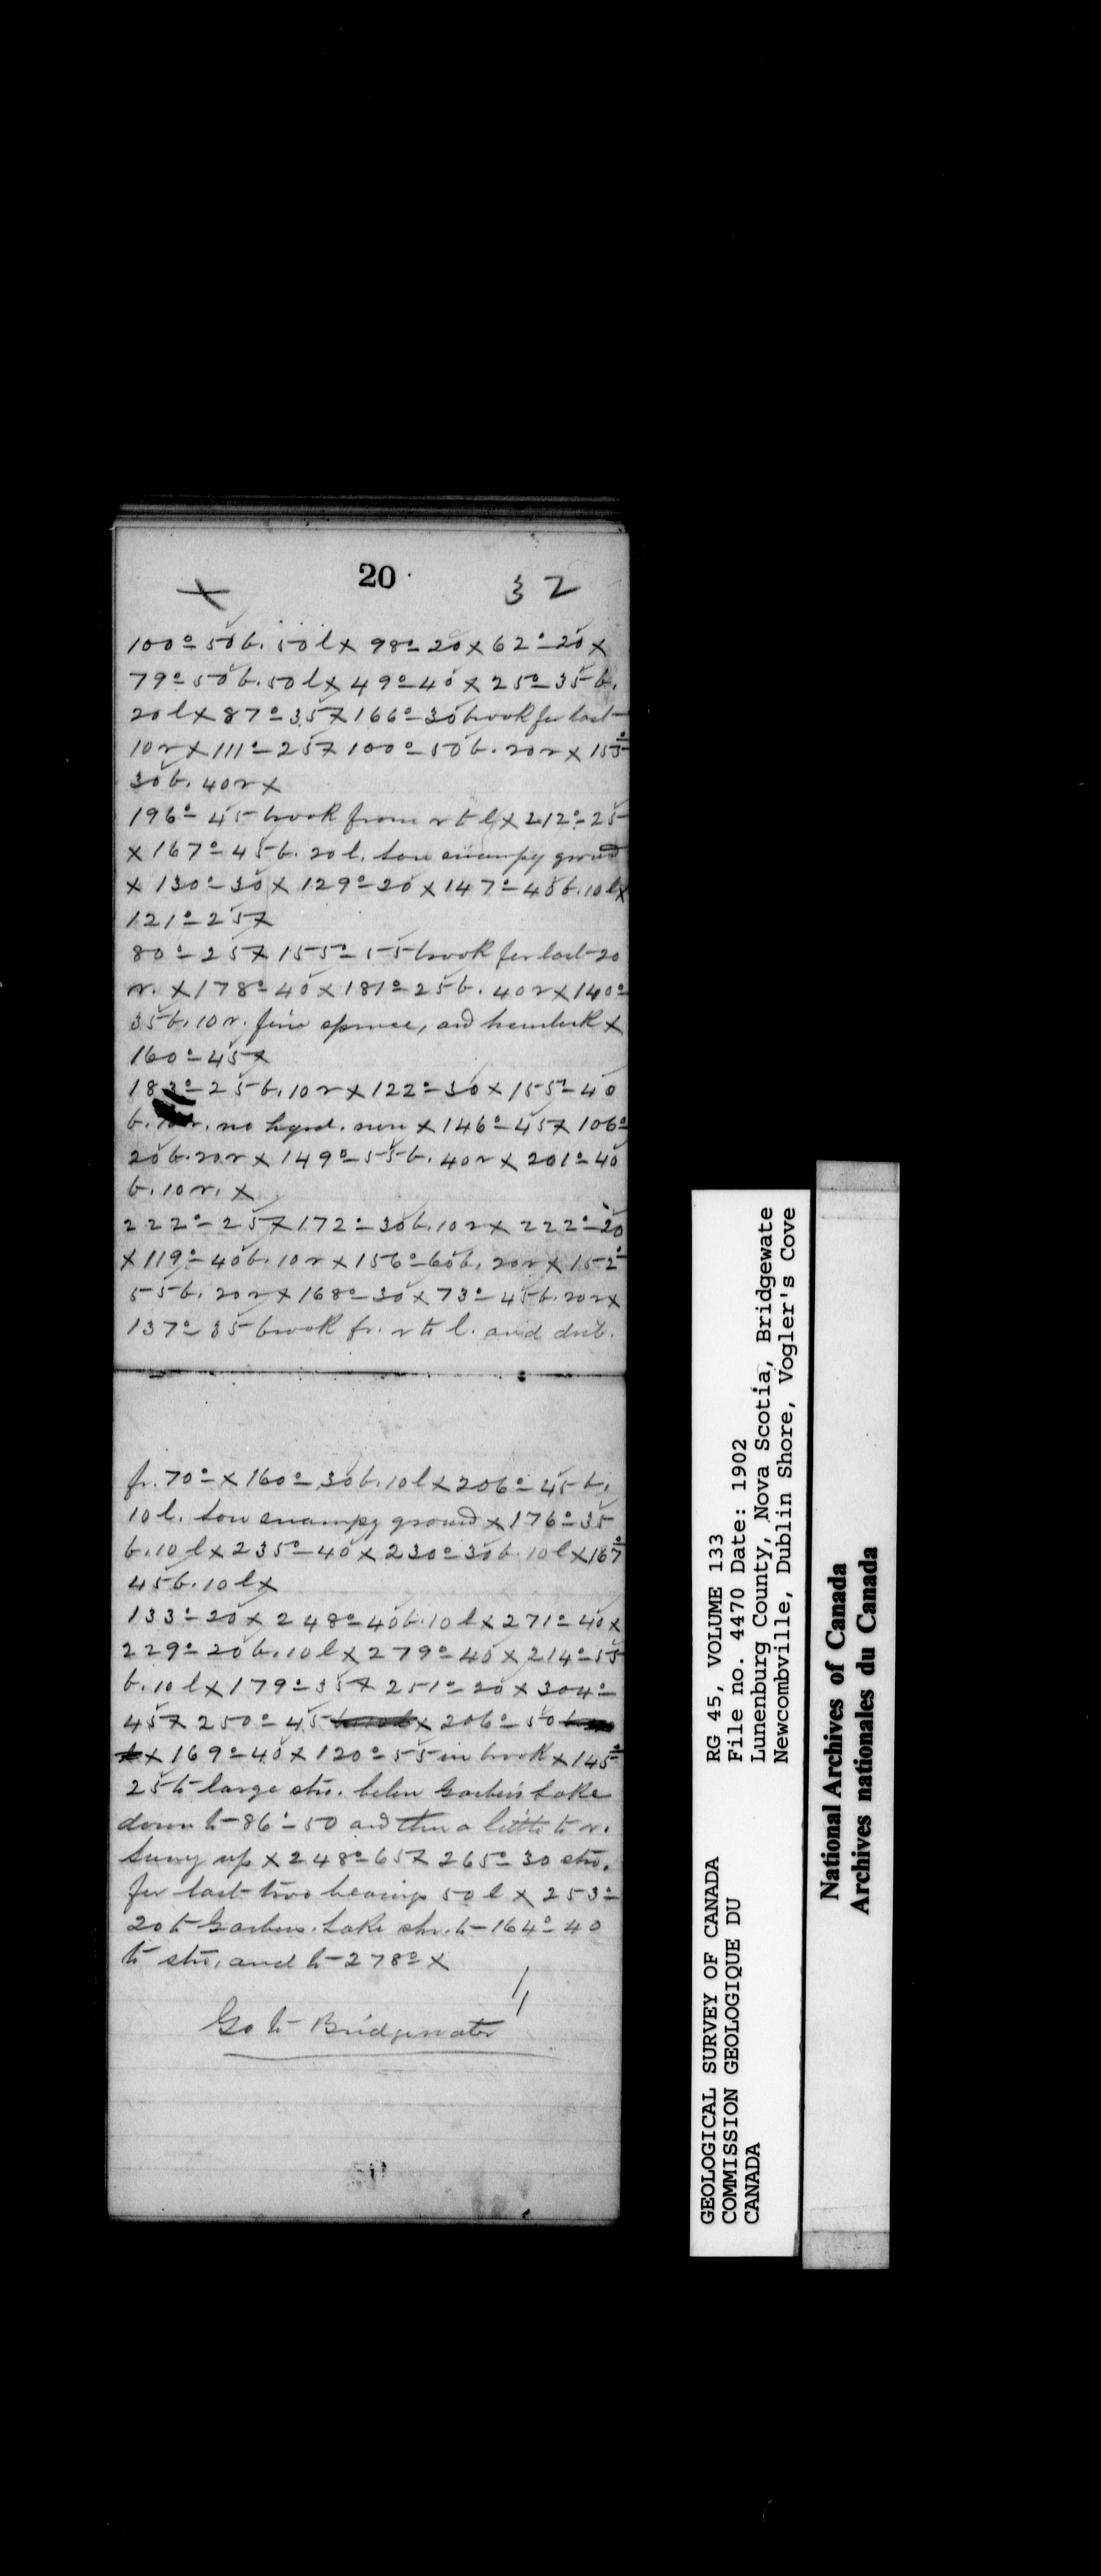 20
x 32
100°-50 b. 50 l x 98°-20 x 62°-20 x
79°-50 b. 50 l x 49°-40 x 25°-35 b.
20 l x 87°-35 x 166°-30 brook for last
10 r x 111°-25 x 100°-50 b. 20 r x 155°
30 b. 40 r x
196°-45 brook from r to l x 212°-25
x 167°-45 b. 20 l. low swampy ground
x 130°-30 x 129°-20 x 147°-40 b. 10 l x
121°-25 x
80°-25 x 155°-55 brook for last 20
r. x 178°-40 x 181°-25 b. 40 r x 140°
35 b. 10 r. fine spruce, and hemlock x
160°-45 x
183°-25 b. 10 r x 122°-30 x 155°-40
b. 10 r. no hyd. x 146°-45 x 106°
20 b. 20 r x 149°-55 b. 40 r x 201°-40
b. 10 r. x
222°-25 x 172°-30 b. 10 r x 222°-20
x 119°-40 b. 10 r x 156°-60 b. 20 r x 152°
55 b. 20 r x 168°-30 x 73°-45 b. 20 r x
137°-35 brook fr. r to l. and
fr. 70° x 160°-30 b. 10 l x 206°-45 b.
10 l. low swampy ground x 176°-35
b. 10 l x 235°-40 x 230°-30 b. 10 l x 167°
45 b. 10 l x
133°-20 x 248°-40 b. 10 l x 271°-40 x
229°-20 b. 10 l x 279°-40 x 214°-55
b. 10 l x 179°-35 x 251°-20 x 304°-
45 x 250°-45 x 206°-50
x 169°-40 x 120°-55 in brook x 145°
25 to large str. below Lake
down to 86°-50 and then a little to r.
Survey up x 248°-65 x 265°-30 str.
for last two bearings 50 l x 253°-
20 to Lake str. to 164°-40
to str. and to 278° x
Go to Bridgewater
GEOLOGICAL SURVEY OF CANADA
COMMISSION GEOLOGIQUE DU
CANADA
RG 45, VOLUME 133
File no. 4470 Date: 1902
Lunenburg County, Nova Scotia, Bridgewate
Newcombville, Dublin Shore, Vogler's Cove
National Archives of Canada
Archives nationales du Canada